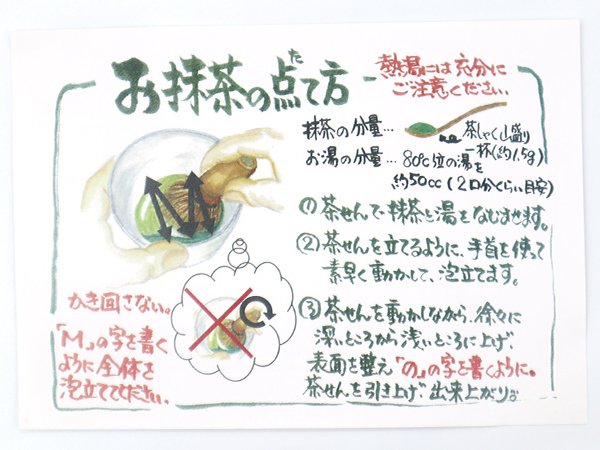 お抹茶の点て方
た
熱湯には充分に
ご注意ください。
抹茶の分量… 茶しゃく山盛り
一杯(約1.5g)
お湯の分量… 80℃位の湯を
約50cc(2口分くらい目安)
①茶せんで抹茶と湯をなじませます。
②茶せんを立てるように、手首を使って
素早く動かして、泡立てます。
③茶せんを動かしながら、徐々に
深いところから浅いところに上げ、
表面を整え「の」の字を書くように。
茶せんを引き上げ、出来上がり。
かき回さない。
「M」の字を書く
ように全体を
泡立ててください。